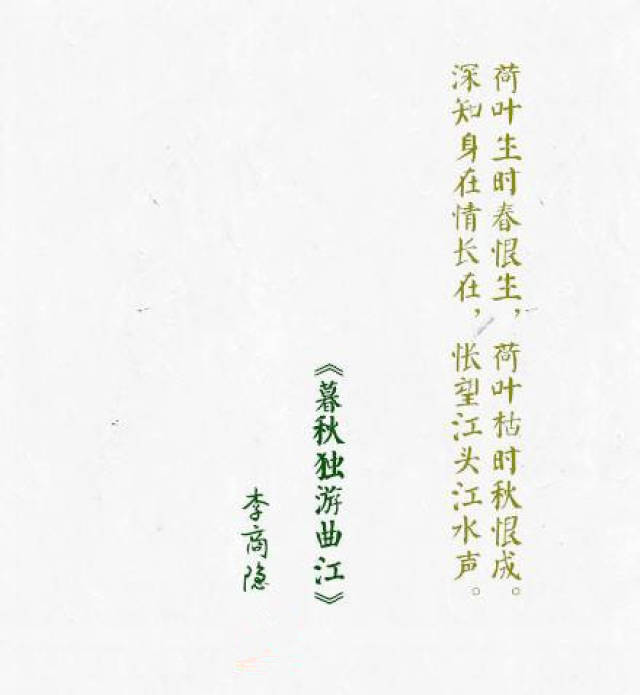 荷叶生时春恨生，荷叶枯时秋恨成。
深知身在情长在，怅望江头江水声。
《暮秋独游曲江》
李商隐